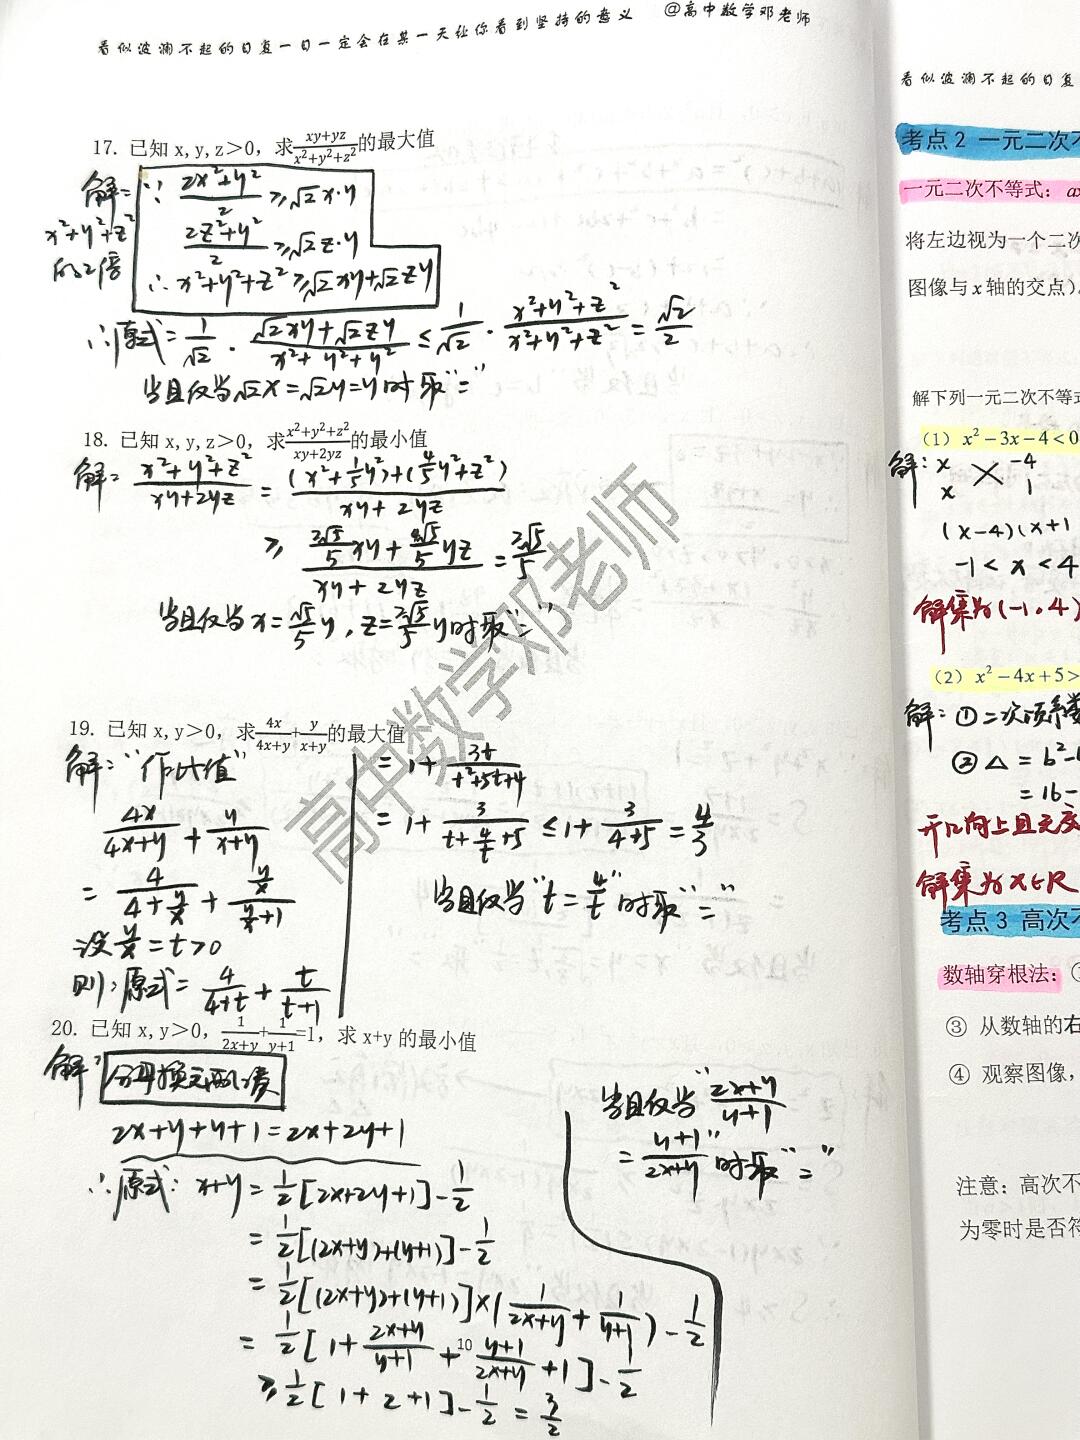 看似波澜不起的日复一日一定会在某一天让你看到坚持的意义 @高中数学邓老师
17. 已知 x,y,z＞0，求(xy+yz)/(x²+y²+z²)的最大值
解: ∵ (2x²+y²)/2 ≥ √2x·y
x²+y²+z²
的2倍
(2z²+y²)/2 ≥ √2z·y
∴ x²+y²+z² ≥ √2xy+√2zy
∴原式 = 1/√2 · (√2xy+√2zy)/(x²+y²+y²) ≤ 1/√2 · (x²+y²+z²)/(x²+y²+z²) = √2/2
当且仅当√2x=√2y=y时取"="
18. 已知 x,y,z＞0，求(x²+y²+z²)/(xy+2yz)的最小值
解: (x²+y²+z²)/(xy+2yz) = ((x²+1/5y²)+(4/5y²+z²))/(xy+2yz)
≥ (2√5/5xy+4√5/5yz)/(xy+2yz) = 2√5/5
当且仅当x=√5/5y，z=2√5/5y时取"="
高中数学邓老师
19. 已知 x,y＞0，求4x/(4x+y)+y/(x+y)的最大值
解: "作比值"
4x/(4x+y) + y/(x+y)
= 4/(4+y/x) + (y/x)/(y/x+1)
设y/x=t>0
则:原式= 4/(4+t) + t/(t+1)
= 1+3t/(t²+5t+4)
= 1+3/(t+4/t+5) ≤ 1+3/(4+5) = 4/3
当且仅当"t=4/t"时取"="
20. 已知 x,y＞0，1/(2x+y)+1/(y+1)=1，求 x+y 的最小值
解: 分母换元配凑
2x+y+y+1=2x+2y+1
∴原式: x+y = 1/2[2x+2y+1]-1/2
= 1/2[(2x+y)+(y+1)]-1/2
= 1/2[(2x+y)+(y+1)]×(1/(2x+y)+1/(y+1))-1/2
= 1/2[1+(2x+y)/(y+1)+(y+1)/(2x+y)+1]-1/2
≥1/2[1+2+1]-1/2=3/2
当且仅当"(2x+y)/(y+1)
=(y+1)/(2x+y)"时取"="
10
看似波澜不起的日复
考点 2 一元二次不
一元二次不等式: ax
将左边视为一个二次
图像与 x 轴的交点)
解下列一元二次不等式
（1）x²−3x−4<0
解: x -4
x 1
(x-4)(x+1
-1<x<4
解集为(-1,4)
（2）x²−4x+5>
解: ①二次项系数
②△=b²-
=16-
开口向上且无
解集为x∈R
考点 3 高次不
数轴穿根法:
③ 从数轴的右
④ 观察图像，
注意: 高次不
为零时是否符